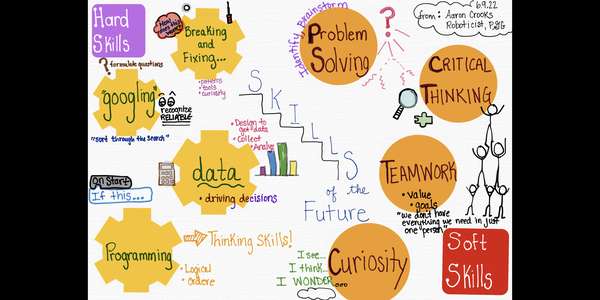 Hard
Skills
Breaking
and
Fixing...
• patterns
• tools
• curiosity
? formulate questions
"googling"
recognize
RELIABLE
"sort through the search"
Identify, brainstorm
Problem
Solving
6.9.22
from: Aaron Crooks
Roboticist, P&G
CRITICAL
THINKING
SKILLS
of the
Future
• Design to
get data
• Collect
• Analyze
data
• driving decisions
TEAMWORK
• value
• goals
"we don't have
everything we need in just
one "person"
on Start
If this...
Programming
Thinking Skills!
• Logical
• ordere
I see...
I think...
I WONDER...
Curiosity
Soft
Skills